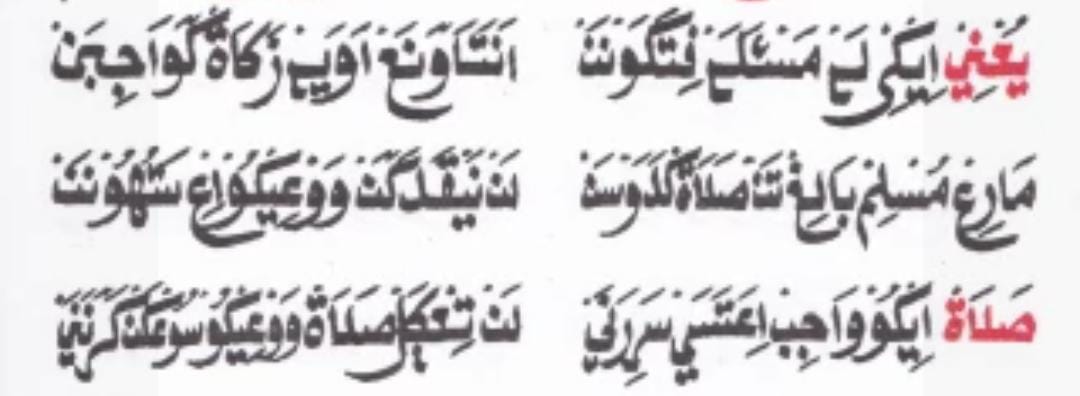 يَعْنِي اِيكِي لَنْ مَسْئَلَنْ فِتَكَوْنَنْ اَنْتَاوَنَڠْ اَوَيْهْ زَكَاةْ كَوَاجِبَنْ
مَارِڠْ مُسْلِمْ بَالِغْ تَنْ صَلَاةْ كَدَوْسَنْ لَنْ نَيْقَدَكَنْ وَوْڠِيكُوْاِڠْ سَتُهُوْنَنْ
صَلَاةْ اِيكُوْ وَاجِبْ اِڠَتَسَيْ سَرِرَنَيْ لَنْ تِڠْكَلْ صَلَاةْ وَوْڠِيكُوْ سَوْڠْكَنْ كَرَنَنَيْ